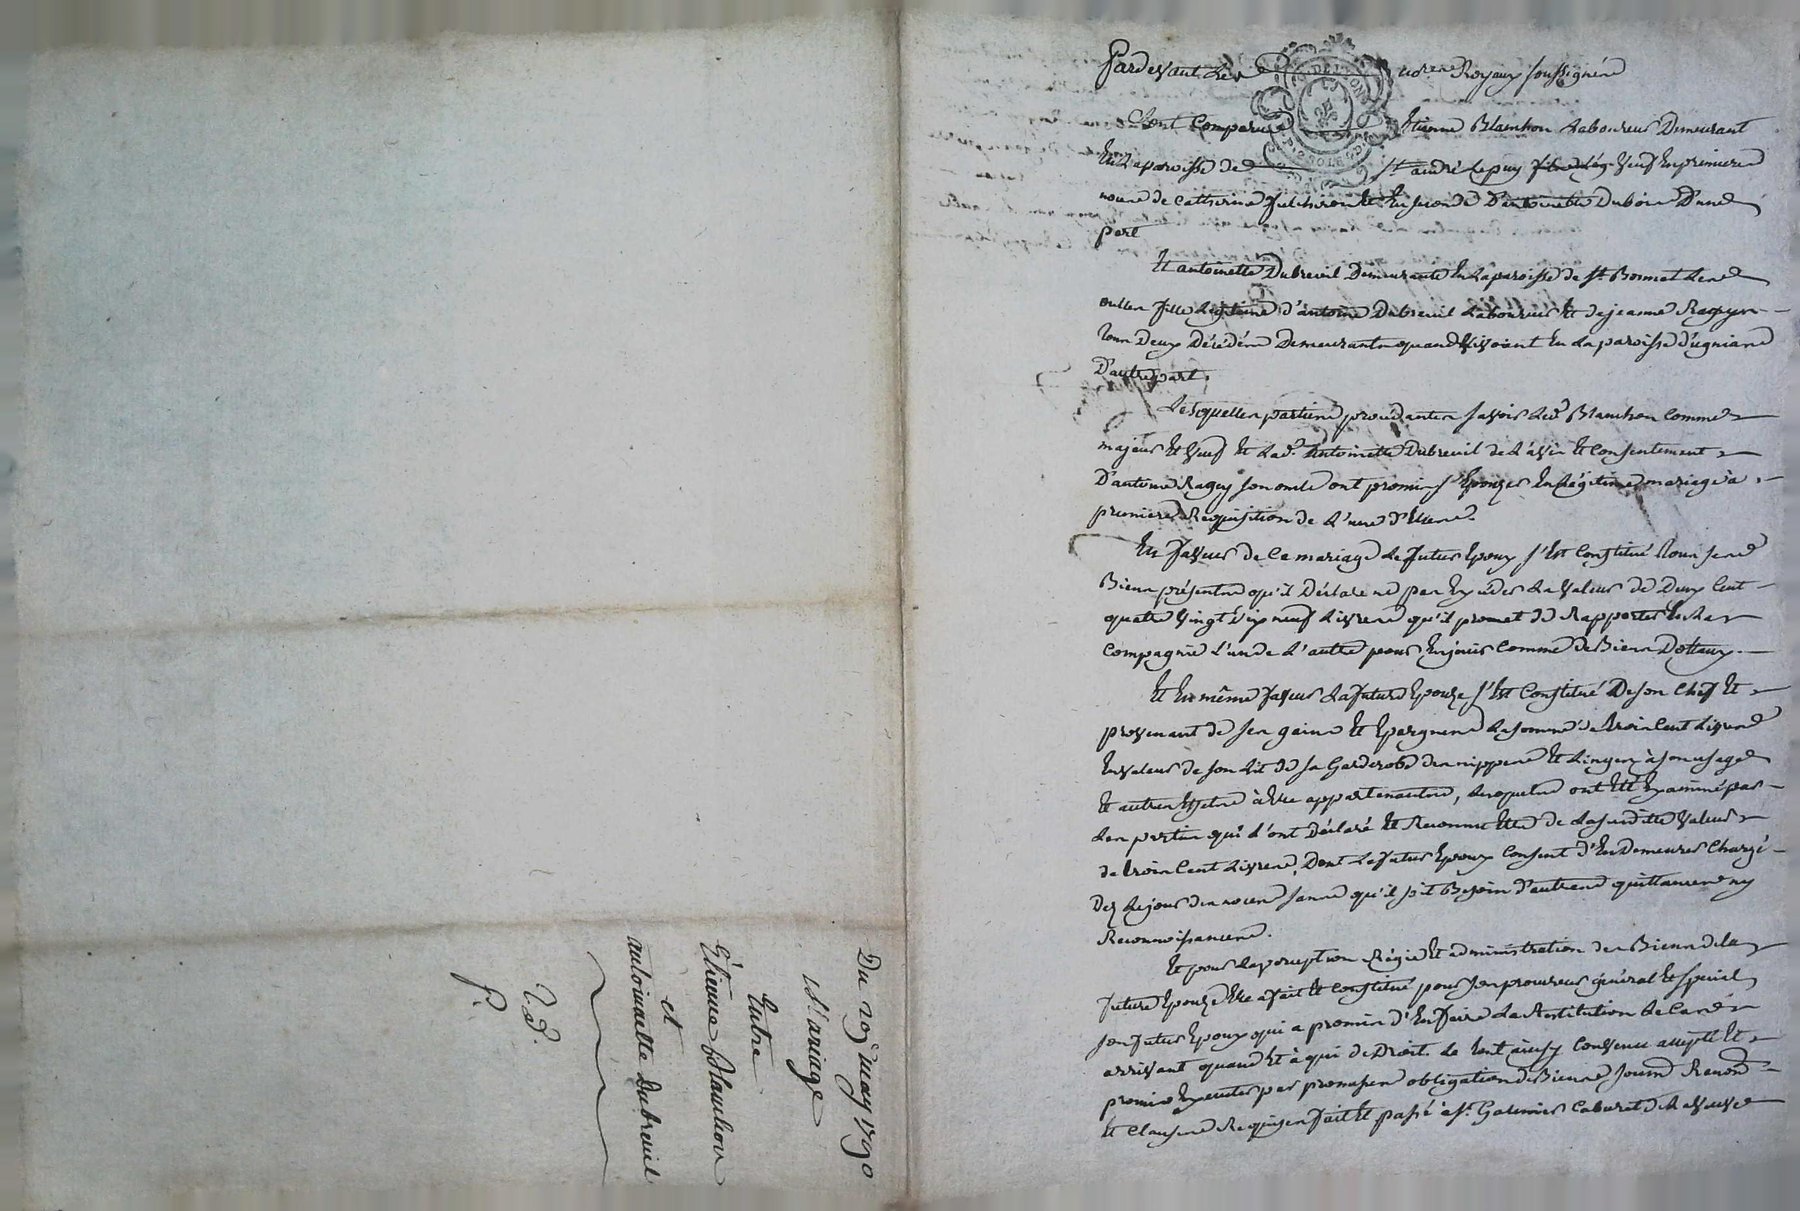 Du 29e may 1790
Mariage
Entre
Etienne Blanchon
et
antoinette Dubreuil
P.
Pardevant Les notres Royaux soussignés
Sont Comparus Etienne Blanchon Laboureur Demeurant
En La paroisse de St andré Lepuy veuf En premieres
noces de Catherine fulchiron Et En seconde D'antoinette Dubois D'une
part
Et antoinette Dubreuil Demeurante En La paroisse de St Bonnet Les
oulles fille Legitime d'antoine Dubreuil Laboureur Et de jeanne Ragey
tous Deux Décédés Demeurants quand Vivoient En La paroisse
D'autre part.
Lesquelles parties procédantes savoir Led. Blanchon Comme
majeur Et Veuf Et Lad. Antoinette Dubreuil de L'avis Et Consentement
D'antoine Ragey son oncle ont promis s'Epouzer En Légitime mariage à
premiere Requisition de L'une d'Elles.
En faveur de Ce mariage Le futur Epoux s'Est Constitué tous ses
Biens présents qu'il Déclare ne pas Exceder La Valeur de Deux Cent
quatre Vingt Dix neuf Livres qu'il promet de Rapporter En La
Compagnie L'un de L'autre pour En jouir Comme de Biens Dottaux.
Et En même faveur La future Epouze s'Est Constitué De son Chef Et
provenant de ses gains Et Epargnes La somme de trois Cent Livres
En valeur de son Lit de sa Garderobe des nippes Et Linges à son usage
Et autres Effets à Elle appartenants, Lesquels ont Eté Examiné par
Les parties qui L'ont Déclaré Et Reconnu Etre de La susditte Valeur
de trois Cent Livres, Dont Le futur Epoux Consent d'En Demeurer Chargé
Dez Le jour des noces sans qu'il soit Besoin d'autres quittances ny
Reconnoissances.
Et pour La perception Régie Et administration des Biens de la
future Epouze Elle a fait Et Constitué pour son procureur général Et spécial
son futur Epoux qui a promis d'En faire La Restitution Le Cas
arrivant quand Et à qui de Droit. Le tout ainsy Convenu accepté Et
promis Executer par promesses obligation de Biens soum Renon
Et Clauses Requises fait Et passé à St. Galmier Cabaret de La Veuve